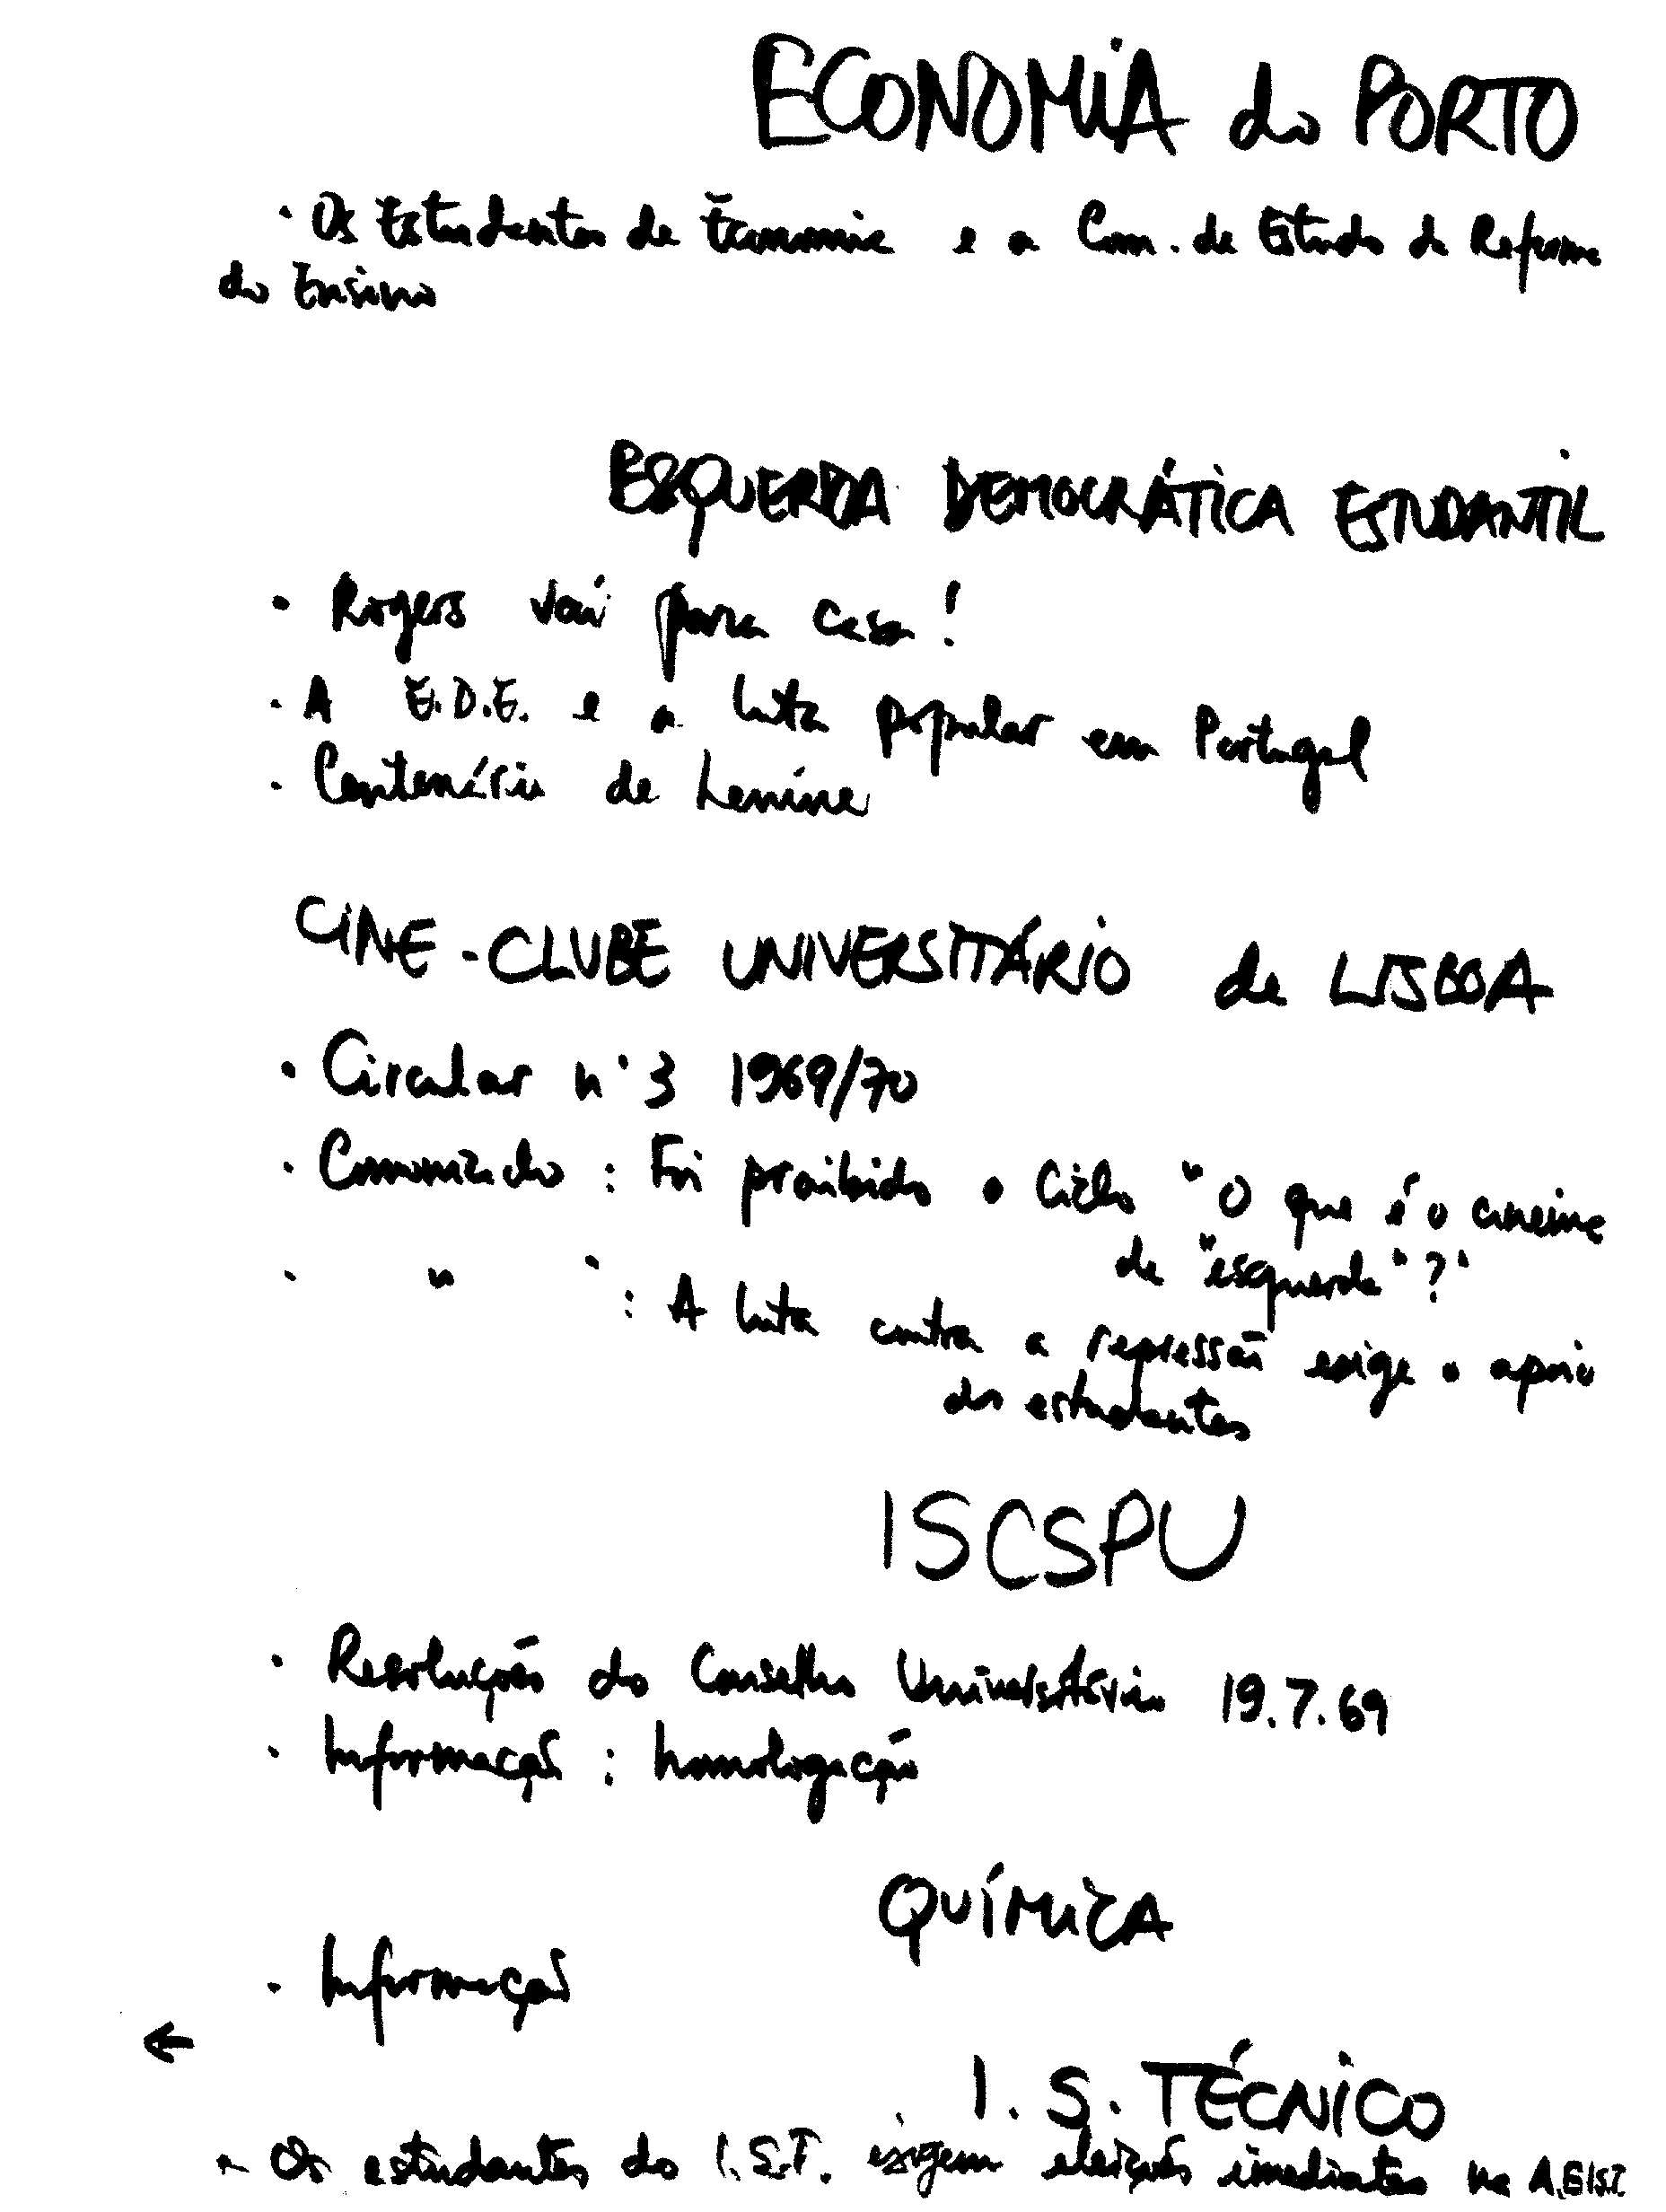 ECONOMIA do PORTO
· Os Estudantes de Economia e a Com. de Estudo da Reforma
do Ensino
ESQUERDA DEMOCRÁTICA ESTUDANTIL
· Rogers vai para casa!
· A E.D.E. e a luta popular em Portugal
· Centenário de Lenine
CINE-CLUBE UNIVERSITÁRIO de LISBOA
· Circular nº 3 1969/70
· Comunicado : Foi proibido o Ciclo "O que é o cinema
de "esquerda"?"
· " " : A luta contra a repressão exige o apoio
dos estudantes
ISCSPU
· Resoluções do Conselho Universitário 19.7.69
· Informação : homologação
QUÍMICA
· Informação
←
I. S. TÉCNICO
- Os estudantes do I.S.T. exigem eleições imediatas na A.E.I.S.T.